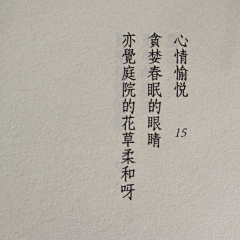 心情愉悦
貪婪春眠的眼睛
亦覺庭院的花草柔和呀
15